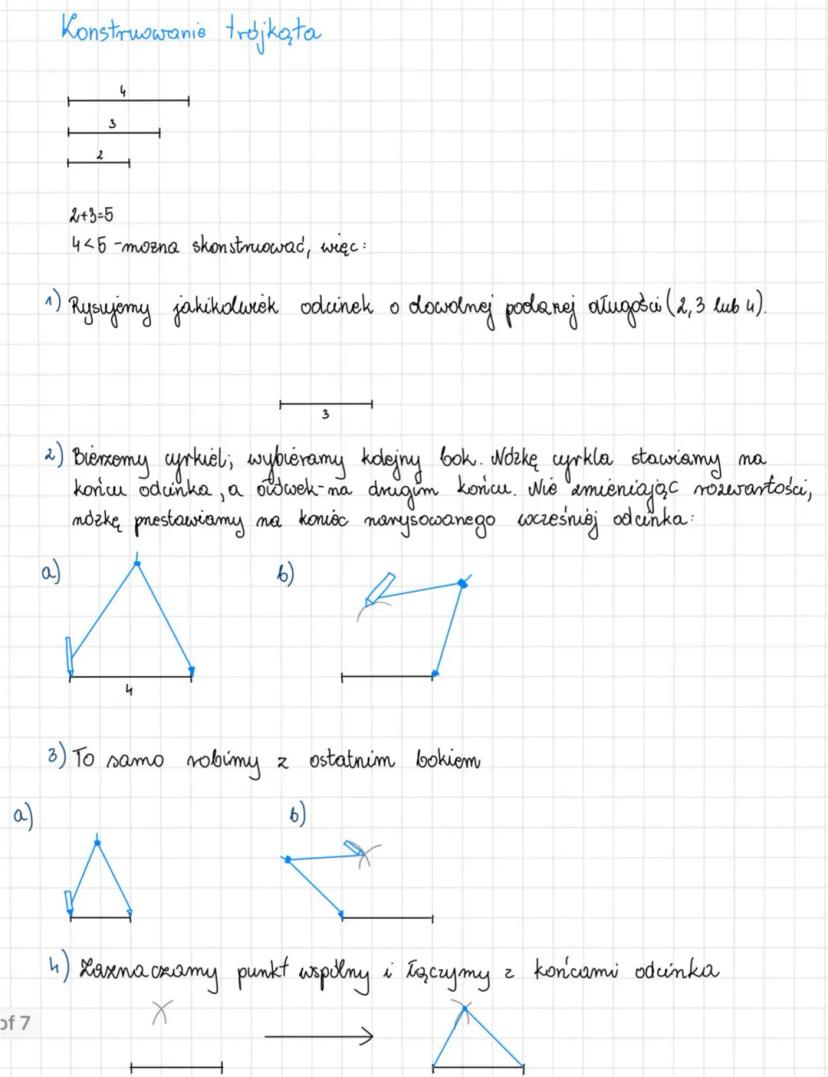 Konstruowanie trójkąta
4
3
2
2+3=5
4<5 -można skonstruować, więc:
1) Rysujemy jakikolwiek odcinek o dowolnej podanej długości (2, 3 lub 4).
3
2) Bierzemy cyrkiel; wybieramy kolejny bok. Nóżkę cyrkla stawiamy na
końcu odcinka, a ołówek-na drugim końcu. Nie zmieniając rozwartości,
nóżkę przestawiamy na koniec narysowanego wcześniej odcinka:
a)
b)
4
3) To samo robimy z ostatnim bokiem
a)
b)
4) Zaznaczamy punkt wspólny i łączymy z końcami odcinka
of 7